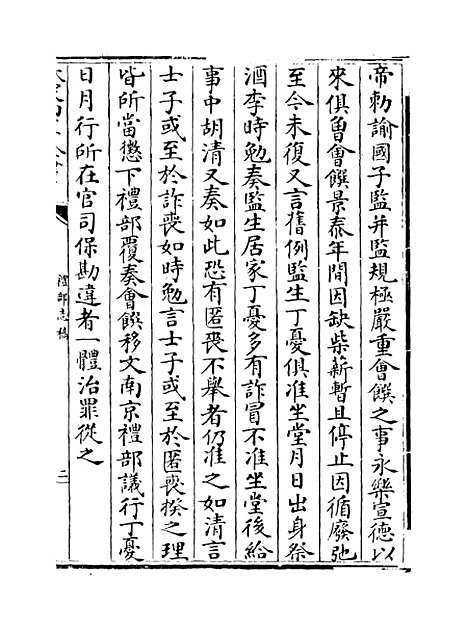 帝勅諭國子監并監規極嚴重會饌之事永樂宣德以
來俱會會饌景泰年間因缺柴薪暫且停止因循廢弛
至今未復又言舊例監生丁憂俱准坐堂月日出身祭
酒李時勉奏監生居家丁憂多有詐冒不准坐堂後給
事中胡清又奏如此恐有匿喪不舉者仍准之如清言
士子或至於詐喪如時勉言士子或至於匿喪揆之理
皆所當懲下禮部覆奏會饌移文南京禮部議行丁憂
日月行所在官司保勘違者一體治罪從之
禮部志稿
二